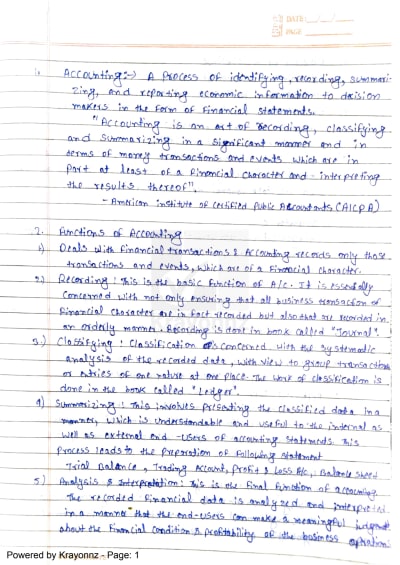 DATE: / /
PAGE
1. Accounting:-> A Process of identifying, recording, summari-
zing, and reporting economic information to decision
makers in the form of financial statements.
"Accounting is an art of recording, classifying
and summarizing in a significant manner and in
terms of money transactions and events which are in
part at least of a financial character and interpreting
the results thereof".
- American institute of Certified Public Accountants (AICPA)
2. Functions of Accounting
1) Deals with financial transactions & Accounting records only those
transactions and events, which are of a financial character.
2.) Recording: This is the basic function of A/c. It is essentially
concerned with not only ensuring that all business transaction of
financial character are in fact recorded but also that are recorded in
an orderly manner. Recording is done in book called "Journal".
3.) Classifying: Classification is concerned with the systematic
analysis of the recorded data, with view to group transactions
or entries of one nature at one place. The work of classification is
done in the book called "Ledger".
4) Summarizing: This involves presenting the classified data in a
manner, which is understandable and useful to the internal as
well as external end-users of accounting statements. This
process leads to the preparation of following statement
Trial Balance, Trading Account, Profit & Loss A/c, Balance sheet
5) Analysis & Interpretation: This is the final function of accounting
The recorded financial data is analyzed and interpreted
in a manner that the end-users can make a meaningful judgment
about the financial condition & profitability of the business operation.
Powered by Krayonnz - Page: 1